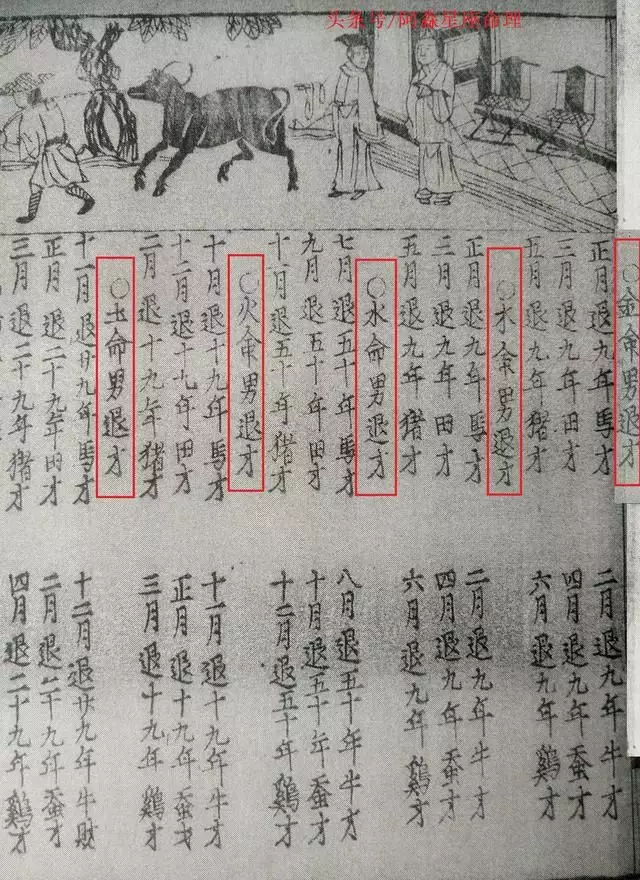 头条号/阿淼星座命理
○金命男退才
正月退九年馬才
三月退九年田才
五月退九年猪才
二月退九年牛才
四月退九年蚕才
六月退九年鷄才
○木命男退才
正月退九年馬才
三月退九年田才
五月退九年猪才
二月退九年牛才
四月退九年蚕才
六月退九年鷄才
○水命男退才
七月退五十年馬才
九月退五十年田才
十一月退五十年猪才
八月退五十年牛才
十月退五十年蚕才
十二月退五十年鷄才
○火命男退才
十月退十九年馬才
十二月退十九年田才
二月退十九年猪才
十一月退十九年牛才
正月退十九年蚕才
三月退十九年鷄才
○土命男退才
十一月退廿九年馬才
正月退二十九年田才
三月退二十九年猪才
十二月退廿九年牛財
二月退二十九年蚕才
四月退二十九年鷄才